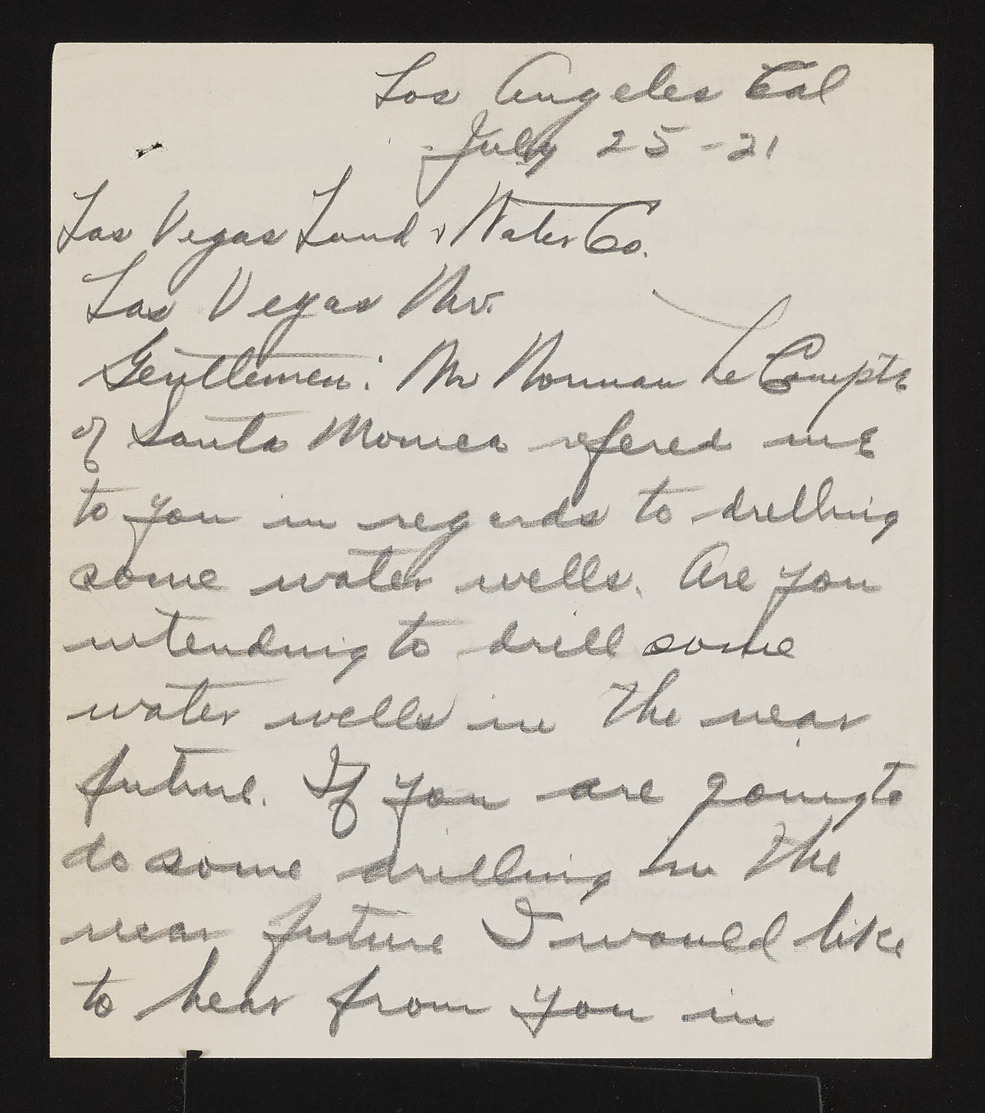 Los Angeles Cal
July 25-21
Las Vegas Land & Water Co.
Las Vegas Nev.
Gentlemen: Mr Norman Le Compte
of Santa Monica refered me
to you in regards to drelling
some water wells. Are you
intending to drill some
water wells in the near
future. If you are going to
do some drilling in the
near future I would like
to hear from you in